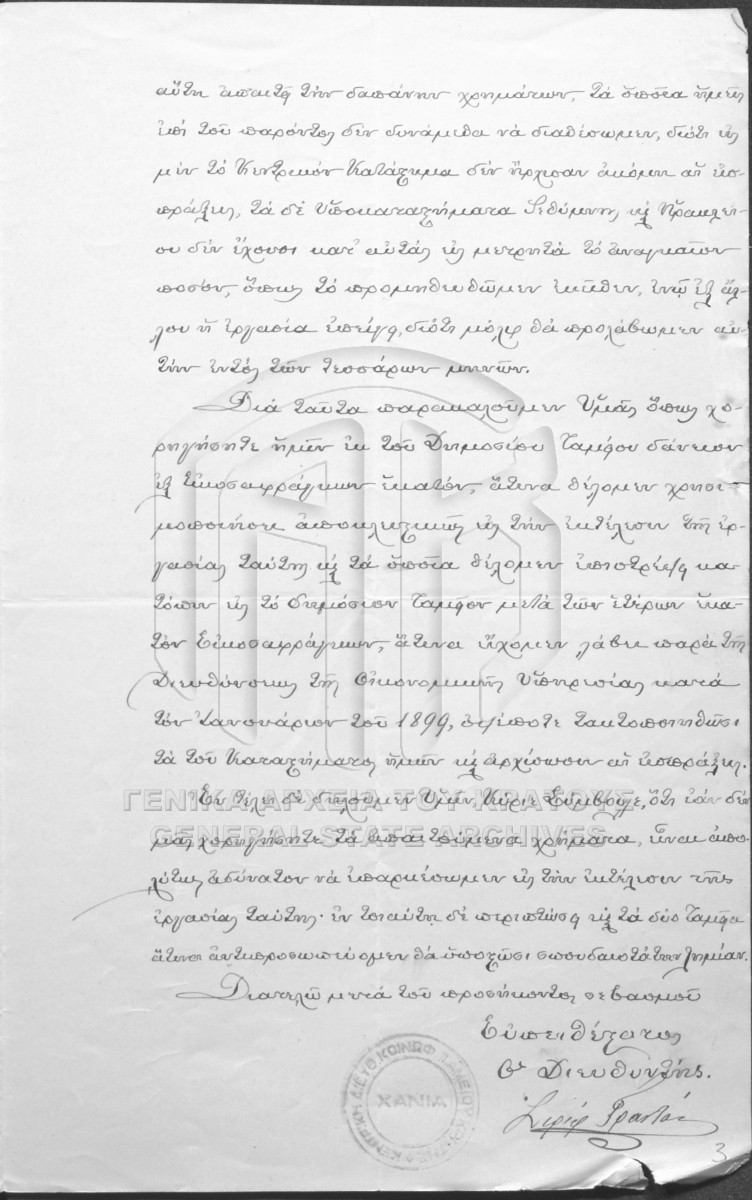 αὕτη ἀπαιτεῖ τὴν δαπάνην χρημάτων, τὰ ὁποῖα ἡμεῖς
ἐπὶ τοῦ παρόντος δὲν δυνάμεθα νὰ διαθέσωμεν, διότι εἰς
μὲν τὸ Κεντρικὸν Κατάστημα δὲν ἤρχισαν ἀκόμη αἱ εἰσ-
πράξεις, τὰ δὲ Ὑποκαταστήματα Ρεθύμνης καὶ Ἡρακλεί-
ου δὲν ἔχουσι κατ' αὐτὰς εἰς μετρητὰ τὸ ἀναγκαῖον
ποσόν, ὅπως τὸ προμηθευθῶμεν ἐκεῖθεν, ἐνῷ ἐξ ἄλ-
λου ἡ ἐργασία ἐπείγει, διότι μόλις θὰ προλάβωμεν αὐ-
τὴν ἐντὸς τῶν τεσσάρων μηνῶν.
Διὰ ταῦτα παρακαλοῦμεν Ὑμᾶς ὅπως χο-
ρηγήσητε ἡμῖν ἐκ τοῦ Δημοσίου Ταμείου δάνειον
ἐξ Εἰκοσαφράγκων ἑκατόν, ἅτινα θέλομεν χρησι-
μοποιήσει ἀποκλειστικῶς εἰς τὴν ἐκτέλεσιν τῆς ἐρ-
γασίας ταύτης καὶ τὰ ὁποῖα θέλομεν ἐπιστρέψῃ κα-
τόπιν εἰς τὸ δημόσιον Ταμεῖον μετὰ τῶν ἑτέρων ἑκα-
τὸν Εἰκοσαφράγκων, ἅτινα εἴχομεν λάβει παρὰ τῆς
Διευθύνσεως τῆς Οἰκονομικῆς Ὑπηρεσίας κατὰ
τὸν Ἰανουάριον τοῦ 1899, ὁψέποτε τακτοποιηθῶσι
τὰ τοῦ Καταστήματος ἡμῶν καὶ ἀρχίσωσιν αἱ εἰσπράξεις.
Ἐν τέλει δὲ δηλοῦμεν Ὑμῖν, Κύριε Σύμβουλε, ὅτι ἐὰν δὲν
μᾶς χορηγήσητε τὰ ἀπαιτούμενα χρήματα, εἶναι ἀπο-
λύτως ἀδύνατον νὰ ἐπαρκέσωμεν εἰς τὴν ἐκτέλεσιν τῆς
ἐργασίας ταύτης· ἐν τοιαύτῃ δὲ περιπτώσει καὶ τὰ δύο Ταμεῖα
ἅτινα ἀντιπροσωπεύομεν θὰ ὑποστῶσι σπουδαιοτάτην ζημίαν.
Διατελῶ μετὰ τοῦ προσήκοντος σεβασμοῦ
Εὐπειθέστατος
Ὁ Διευθυντής.
ΧΑΝΙΑ
3
ΓΕΝΙΚΑ ΑΡΧΕΙΑ ΤΟΥ ΚΡΑΤΟΥΣ
GENERAL STATE ARCHIVES